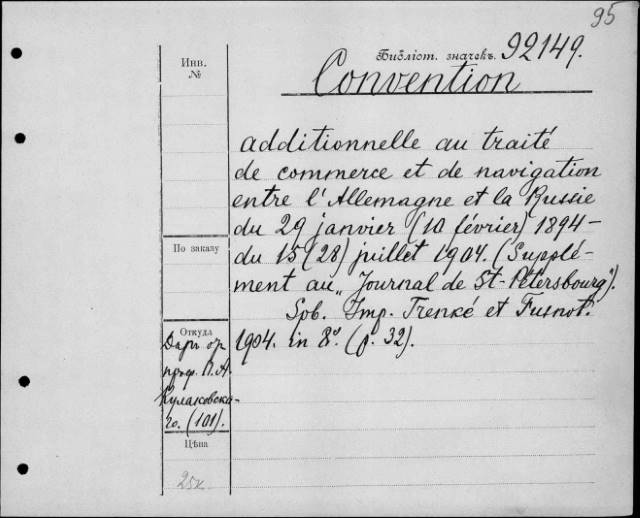 95
Инв.
№
Библіот. значекъ. 92149.
Convention
additionnelle au traité
de commerce et de navigation
entre l'Allemagne et la Russie
du 29 janvier (10 février) 1894 –
du 15 (28) juillet 1904. (Supplé-
ment au „Journal de St-Pétersbourg").
Spb. Imp. Trenké et Fusnot.
1904. in 8º. (p. 32).
По заказу
Откуда
Даръ отъ
проф. П. А.
Кулаковска-
го. (101).
Цѣна
25к